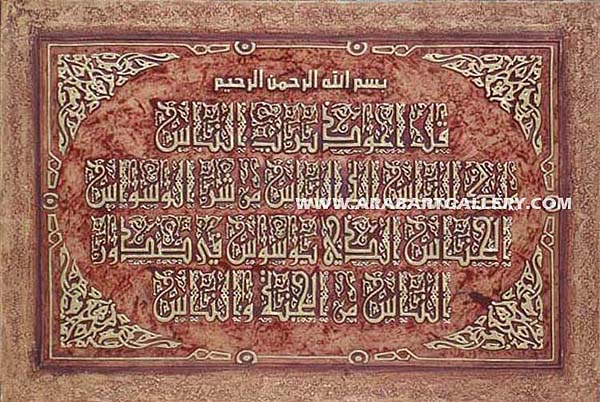 بسم الله الرحمن الرحيم
قل اعوذ برب الناس
ملك الناس اله الناس من شر الوسواس
WWW.ARABARTGALLERY.COM
الخناس الذي يوسوس في صدور
الناس من الجنة والناس